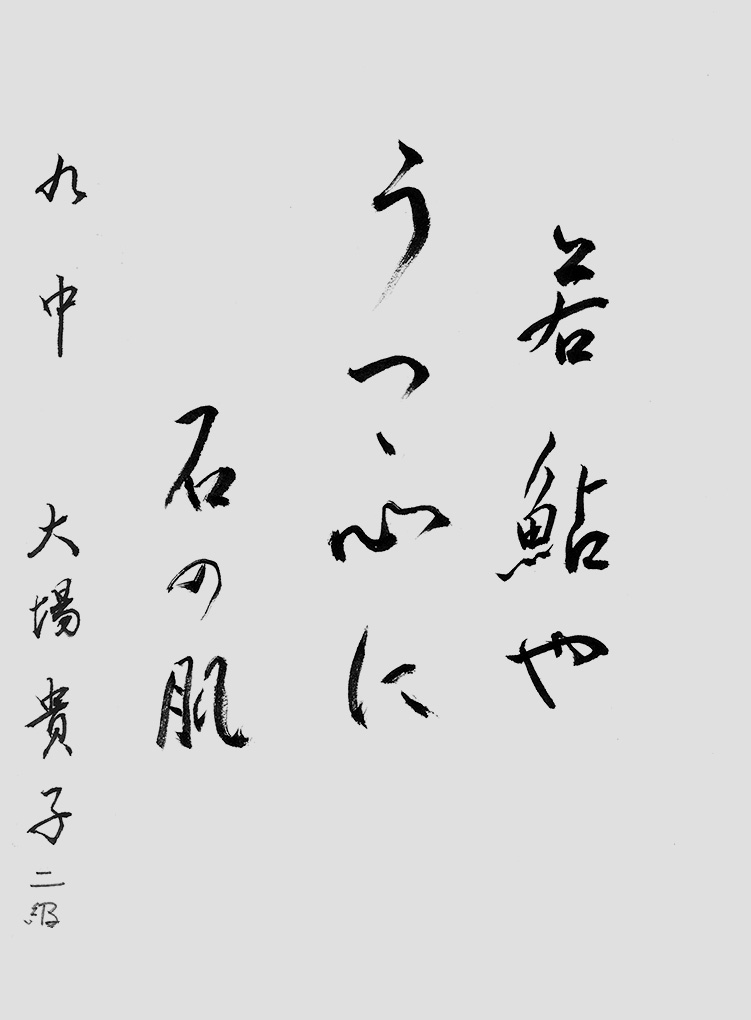 若鮎や
うつゝ心に
石の肌
九中 大場貴子 二級